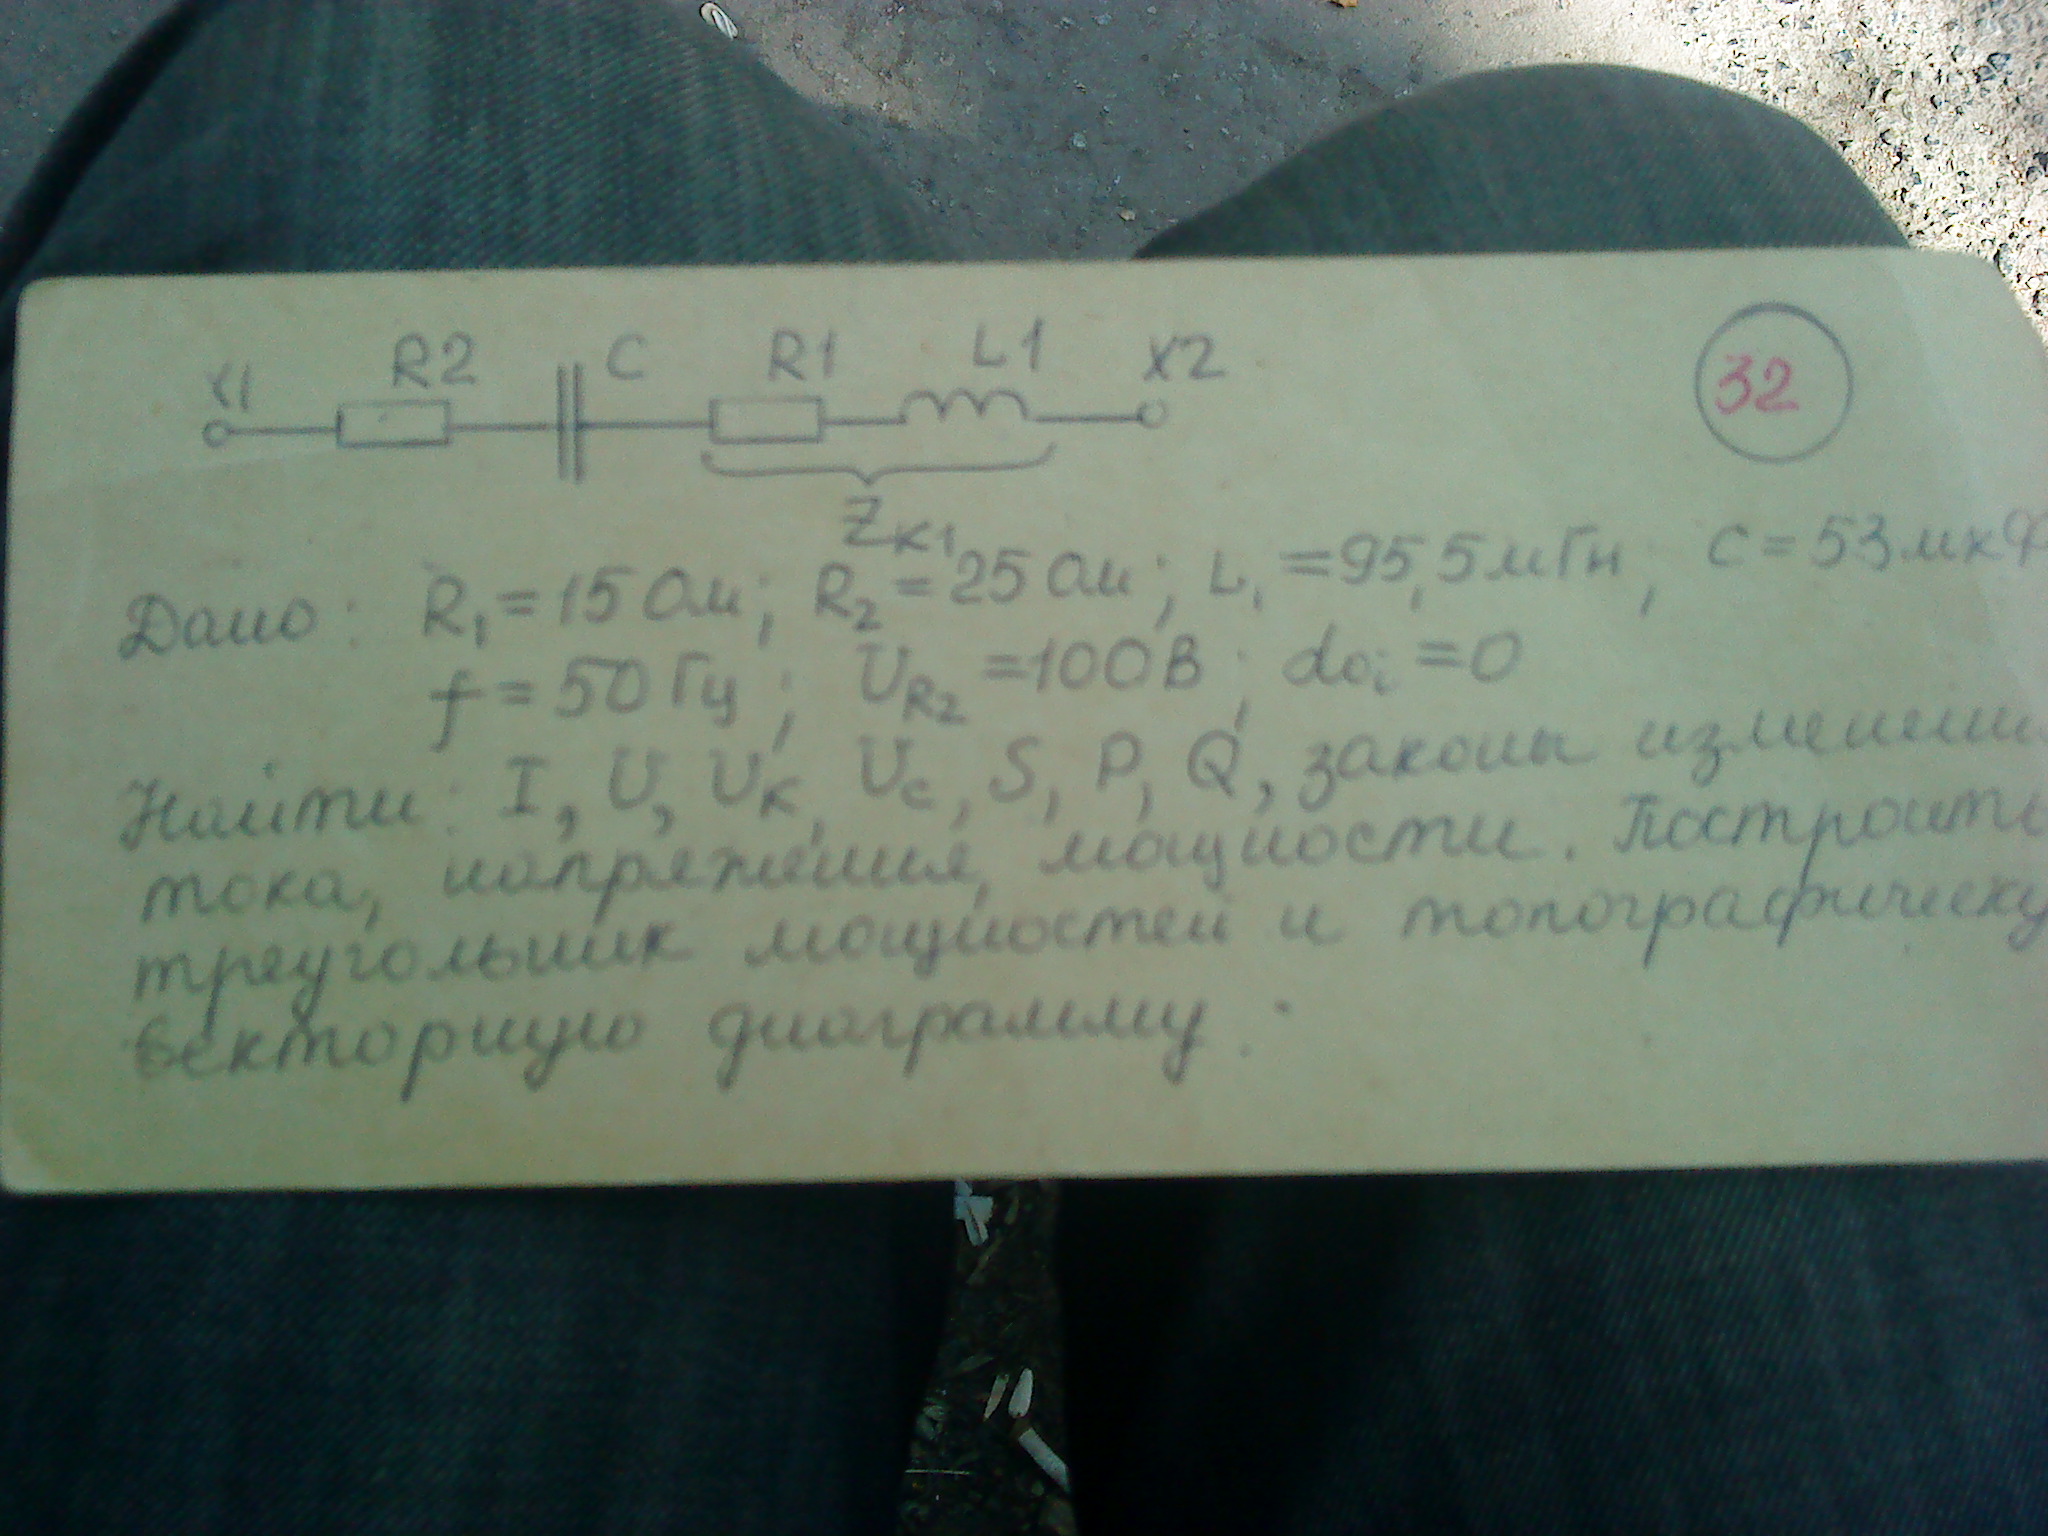 X1 R2 C R1 L1 X2
32
ZK1
Дано: R1 = 15 Ом; R2 = 25 Ом; L1 = 95,5 мГн; C = 53 мкФ
f = 50 Гц; UR2 = 100 В; αoi = 0
Найти: I, U, UK, UC, S, P, Q, законы изменени
тока, напряжения, мощности. Построить
треугольник мощностей и топографическу
векторную диаграмму.